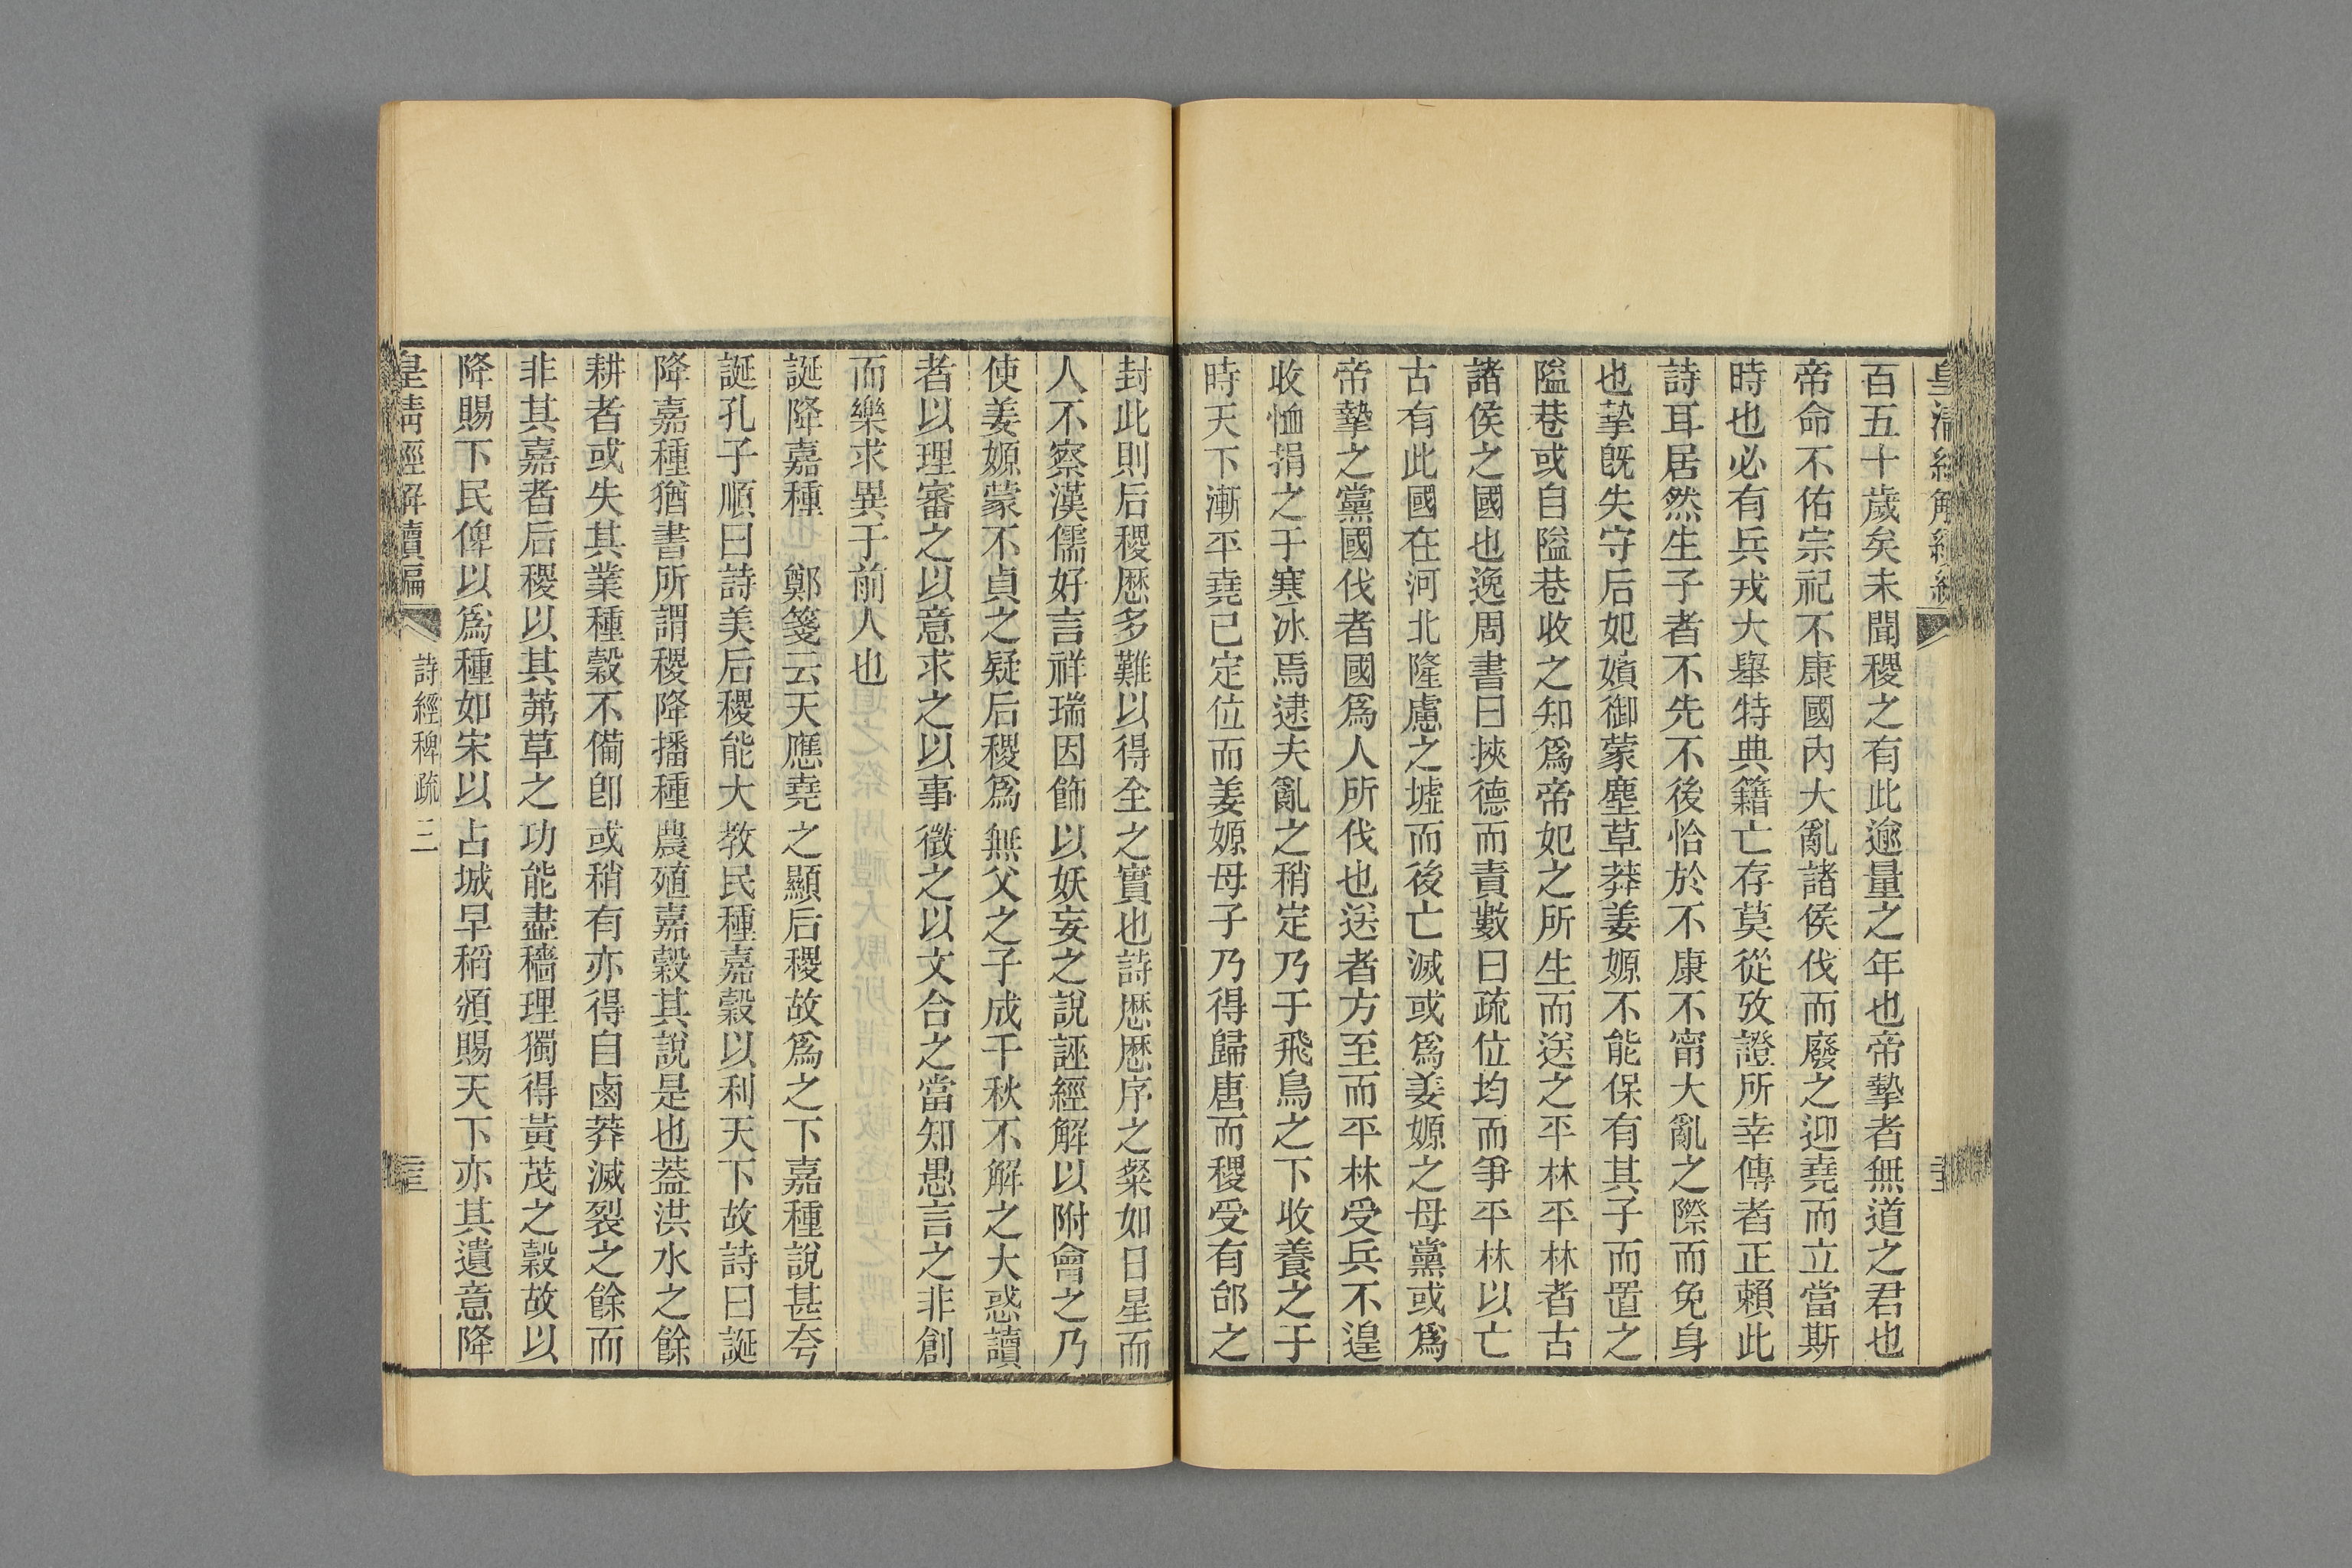 百五十歲矣未聞稷之有此逾量之年也帝摯者無道之君也
帝命不佑宗祀不康國內大亂諸侯伐而廢之迎堯而立當斯
時也必有兵戎大舉特典籍亡存莫從攷證所幸傳者正賴此
詩耳居然生子者不先不後恰於不康不甯大亂之際而免身
也摯既失守后妃嬪御蒙塵草莽姜嫄不能保有其子而置之
隘巷或自隘巷收之知爲帝妃之所生而送之平林平林者古
諸侯之國也逸周書曰挾德而責數日疏位均而爭平林以亡
古有此國在河北隆慮之墟而後亡滅或爲姜嫄之母黨或爲
帝摯之黨國伐者國爲人所伐也送者方至而平林受兵不遑
收恤捐之于寒冰焉逮夫亂之稍定乃于飛鳥之下收養之于
時天下漸平堯已定位而姜嫄母子乃得歸唐而稷受有邰之
封此則后稷歷多難以得全之實也詩歷歷序之粲如日星而
人不察漢儒好言祥瑞因飾以妖妄之說誣經解以附會之乃
使姜嫄蒙不貞之疑后稷爲無父之子成千秋不解之大惑讀
者以理審之以意求之以事徵之以文合之當知愚言之非創
而樂求異于前人也
誕降嘉種 鄭箋云天應堯之顯后稷故爲之下嘉種說甚夸
誕孔子順曰詩美后稷能大教民種嘉穀以利天下故詩曰誕
降嘉種猶書所謂稷降播種農殖嘉穀其說是也葢洪水之餘
耕者或失其業種穀不備卽或稍有亦得自鹵莽滅裂之餘而
非其嘉者后稷以其茀草之功能盡穡理獨得黃茂之穀故以
降賜下民俾以爲種如宋以占城早稻頒賜天下亦其遺意降
皇清經解續編 詩經稗疏三